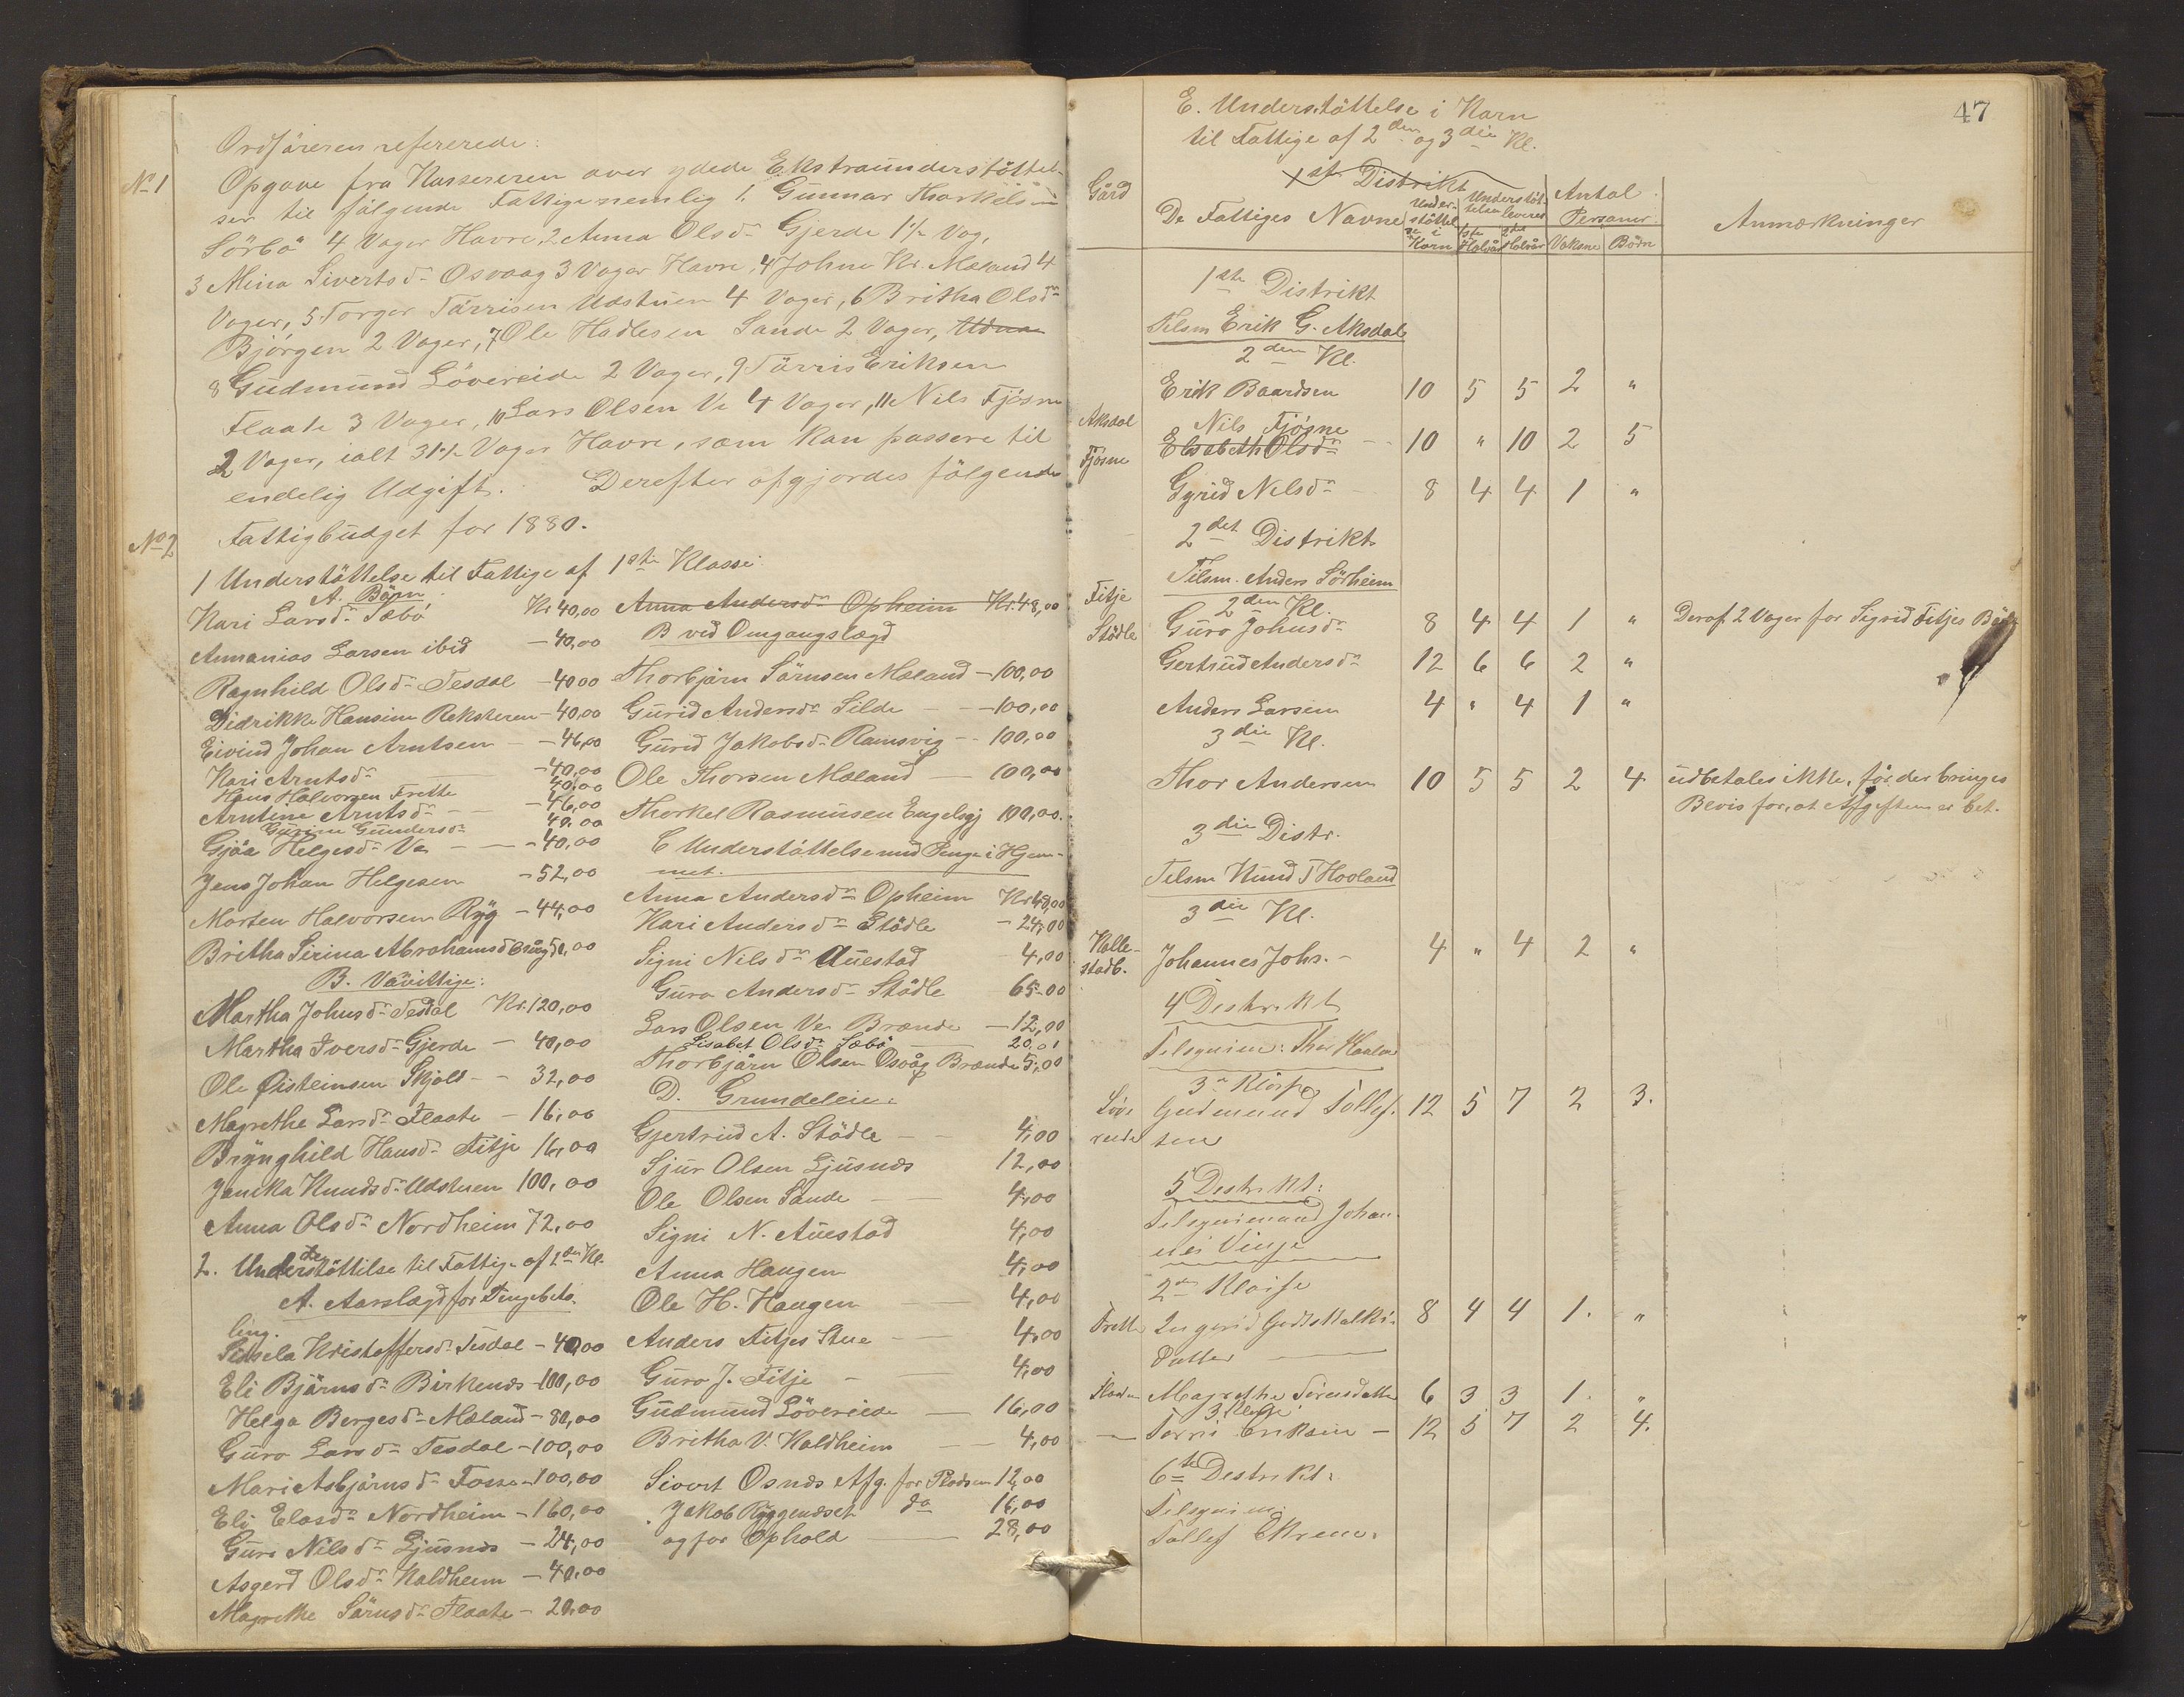 Ordføreren refererede:
No 1 Opgave fra Kassereren over ydede Ekstraunderstøttel-
ser til følgende Fattige nemlig 1. Gunnar Thorkels
Sörbö 4 Vager Havre, 2 Anna Olsdr Gjerde 1½ Vog,
3 Mina Sivertsdr Osvaag 3 Vager Havre, 4 Johne Kr. Mæland 4
Vager, 5 Torger Törrisen Udstuen 4 Vager, 6 Britha Olsdr
Bjørgen 2 Vager, 7 Ole Hadlesen Sande 2 Vager,
8 Gudmund Lövereide 2 Vager, 9 Törris Eriksen
Flaate 3 Vager, 10 Lars Olsen Ve 4 Vager, 11 Nils Fjösne
2 Vager, ialt 31½ Vager Havre, som kan passere til
endelig Udgift. Derefter afgjordes følgende
No 2 Fattigbudget for 1880.
1 Understöttelse til Fattige af 1ste Klasse
A. Börn
Kari Larsdr Sæbö Kr 40,00
Annanias Larsen ibid - 40,00
Ragnhild Olsdr Tesdal - 40 00
Didrikke Hansine Reksteren - 40,00
Eivind Johan Arntsen - 46,00
Kari Arntsdr - 40,00
Hans Halvorsen Frette 40,00
Arntine Arntsdr - 46,00
Gurine Gundersdr 40,00
Gjöa Helgesdr Ve - 40,00
Jens Johan Helgesen - 52,00
Morten Halvorsen Ryg - 44,00
Britha Sirina Abrahamsd
B. Vanvittige:
Martha Johnsdr Tesdal Kr. 120,00
Martha Iversdr Gjerde - 40,00
Ole Øisteinsen Skjold - 32,00
Magrethe Larsdr Flaate - 16,00
Brynghild Hansdr Fitje 16,00
Janika Knudsdr Udstuen 100,00
Anna Olsdr Nordheim 72,00
2. Understöttelse til Fattige af 2den Kl.
A. Aarslægd for Pengebeta-
ling.
Sissela Kristoffersdr Tesdal - 40,00
Eli Bjørnsdr Birkenes - 100,00
Helga Bergesdr Mæland - 80,00
Guro Larsdr Tesdal - 100,00
Mari Asbjørnsdr Fosse - 100,00
Eli Elasdr Nordheim - 160,00
Guro Nilsdr Ljusnes - 24,00
Asgerd Olsdr Kaldheim - 40,00
Magrethe Sörnsdr Flaate - 20,00
Anna Andersdr Opheim Kr. 48,00
B ved Omgangslægd
Thorbjørn Sörnsen Mæland - 100,00
Gurid Andersdr Silde - 100,00
Gurid Jakobsdr Ramsvig - 100,00
Ole Thorsen Mæland - 100,00
Thorkel Rasmusen Engelsgj 100,00.
C Understöttelse med Penge i Hjem-
met.
Anna Andersdr Opheim Kr 48,00
Kari Andersdr Stödle - 24,00
Signi Nilsdr Auestad 4,00
Guro Andersdr Stödle 65-00
Lars Olsen Ve Brænde - 12,00
Lisabet Olsdr Sæbö 20,01
Thorbjørn Olsen Osvåg Brænde 5,00
D. Grundeleie.
Gjertrud A. Stödle 4,00
Sjur Olsen Ljusnes 12,00
Ole Olsen Sande 4,00
Signi N. Auestad 4,00
Anna Haugen 4,00
Ole H. Haugen 4,00
Anders Fitjes Stue 4,00
Guro J. Fitje 4,00
Gudmund Lövereide 16,00
Britha V. Kaldheim 4,00
Sivert Osnes Afg. for Pladsen 12,00
Jakob Ryggendset do 16,00
og for Ophold 28,00
47
E. Understöttelse i Korn
til Fattige af 2den og 3die Kl.
1ste Distrikt
Gård De Fattiges Navne Under-stöttelse i Korn Understöt-telsen leveres 1ste Halvår 2det Halvår Antal Personer. Voksne Börn Anmærkninger
1ste Distrikt
Tilsm Erik G. Aksdal
2den Kl.
Aksdal Erik Baardsen 10 5 5 2 "
Nils Fjösne
Fjösne Elisabeth Olsdr 10 " 10 2 5
Gyrid Nilsdr 8 4 4 1 "
2det Distrikt
Tilsm. Anders Sörheim
2den Kl.
Fitje Guro Johnsdr 8 4 4 1 " Deraf 2 Vager for Sigrid Fitjes
Stödle Gertrud Andersdr 12 6 6 2 "
Anders Larsen 4 " 4 1 "
3die Kl.
Thor Andersen 10 5 5 2 4 udbetales ikke, før der bringes
Bevis for, at Afgiften er bet.
3die Distr.
Tilsm Knud T Hovland
3die Kl.
Kalle-
stadb. Johannes Johs. - 4 " 4 2 "
4 Distrikt
Tilsynsm: Thor
3die Klasse
Löve
reide Gudmund Tollef- 12 5 7 2 3.
sen
5 Distrikt:
Tilsynsmand Johan-
nes Vinje
2den Klasse
Frette Ingerid Godtskalks- 8 4 4 1. "
datter
Flaate Magrethe Sörensdatter 6 3 3 1. "
3 Klasse
Törris Eriksen - 12 5 7 2 4.
6te Distrikt:
Tilsynsm:
Tollef Ekrene.